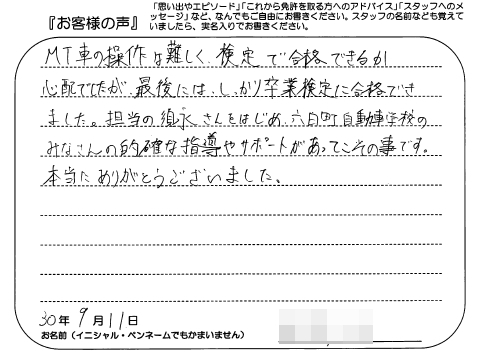 『お客様の声』
「思い出やエピソード」「これから免許を取る方へのアドバイス」「スタッフへのメッセージ」など、なんでもご自由にお書きください。スタッフの名前なども覚えていましたら、実名入りでお書きください。
MT車の操作は難しく、検定で合格できるか
心配でしたが、最後には、しっかり卒業検定に合格でき
ました。担当の須永さんをはじめ、六日町自動車学校の
みなさんの的確な指導やサポートがあってこその事です。
本当にありがとうございました。
30年 9月 11日
お名前(イニシャル・ペンネームでもかまいません)